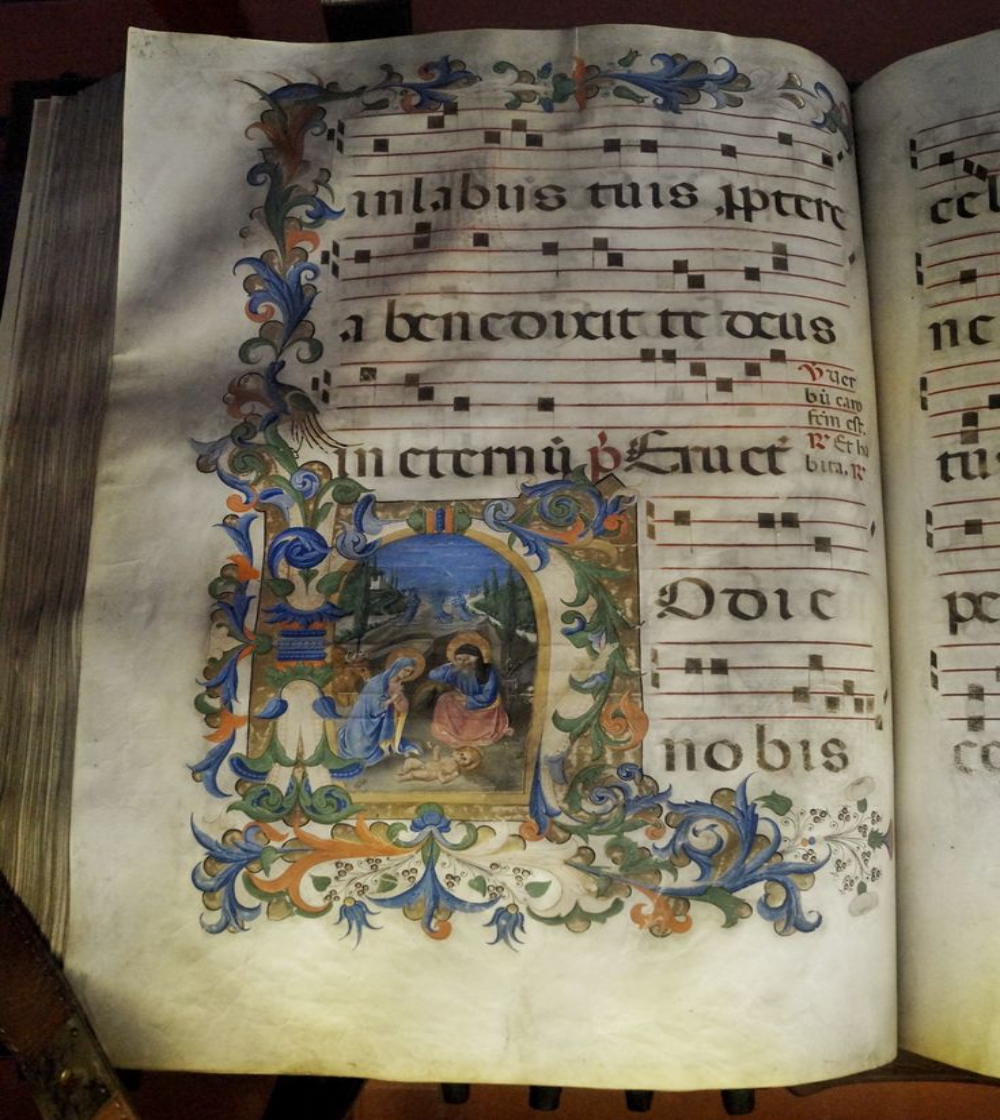 in labiis tuis ꝓptere
a benedixit te deus
in eternū p̄s Eruct
V̄ Uer
bū caro
fctm est.
R̄ Et ha
bita. R̄
Odie
nobis
ne
tu